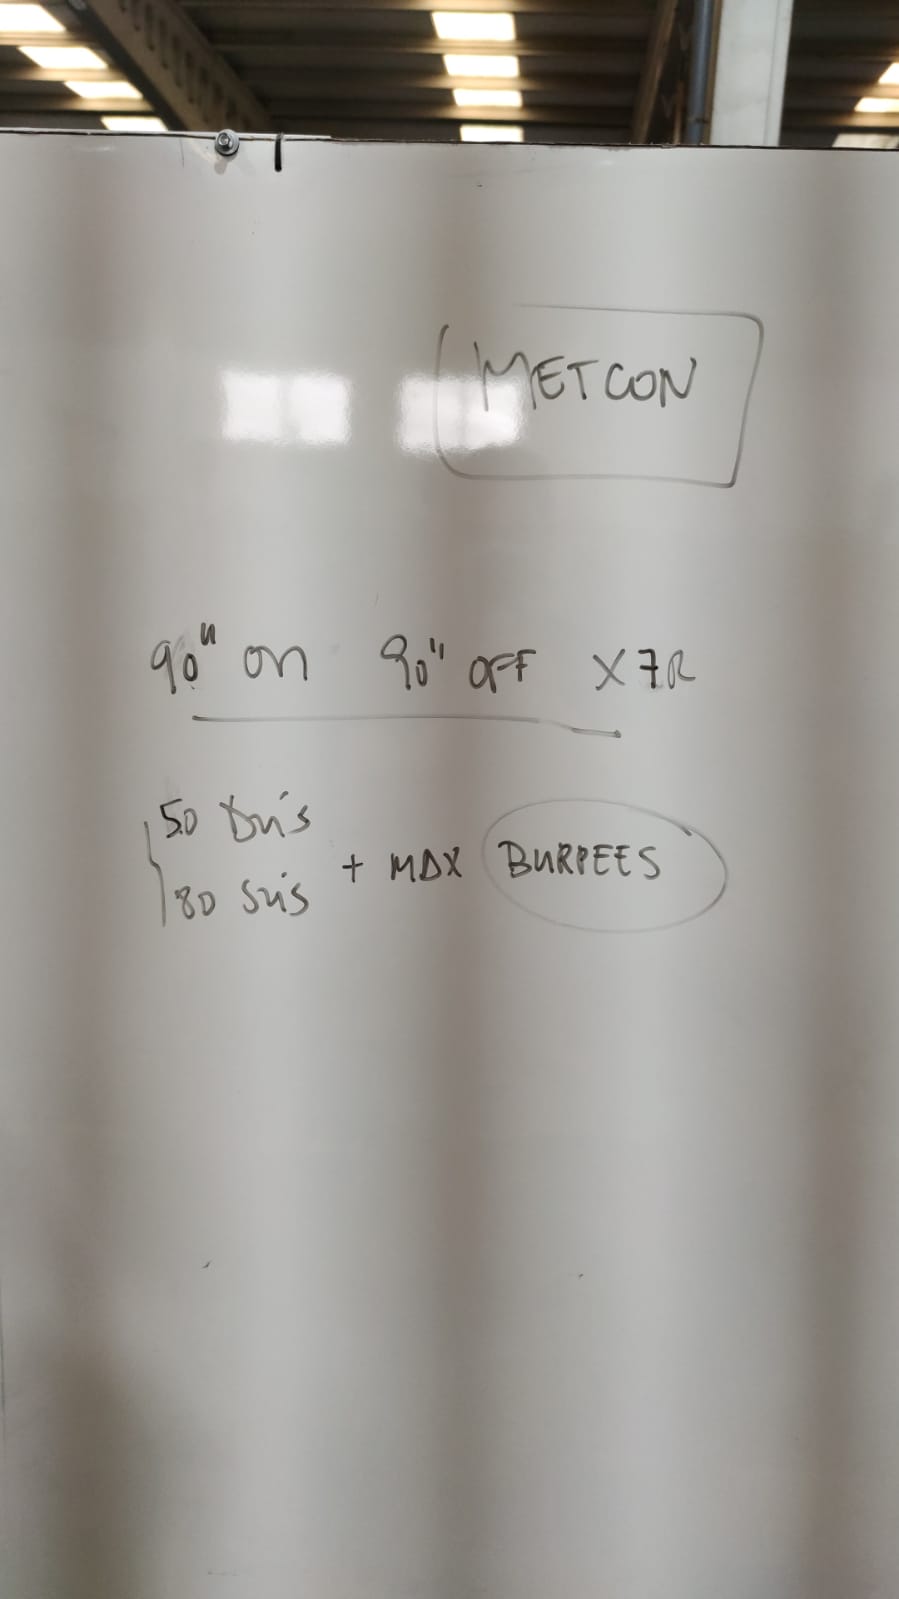 METCON
90" on 90" OFF X7R
50 Du's
80 Su's
+ MAX BURPEES